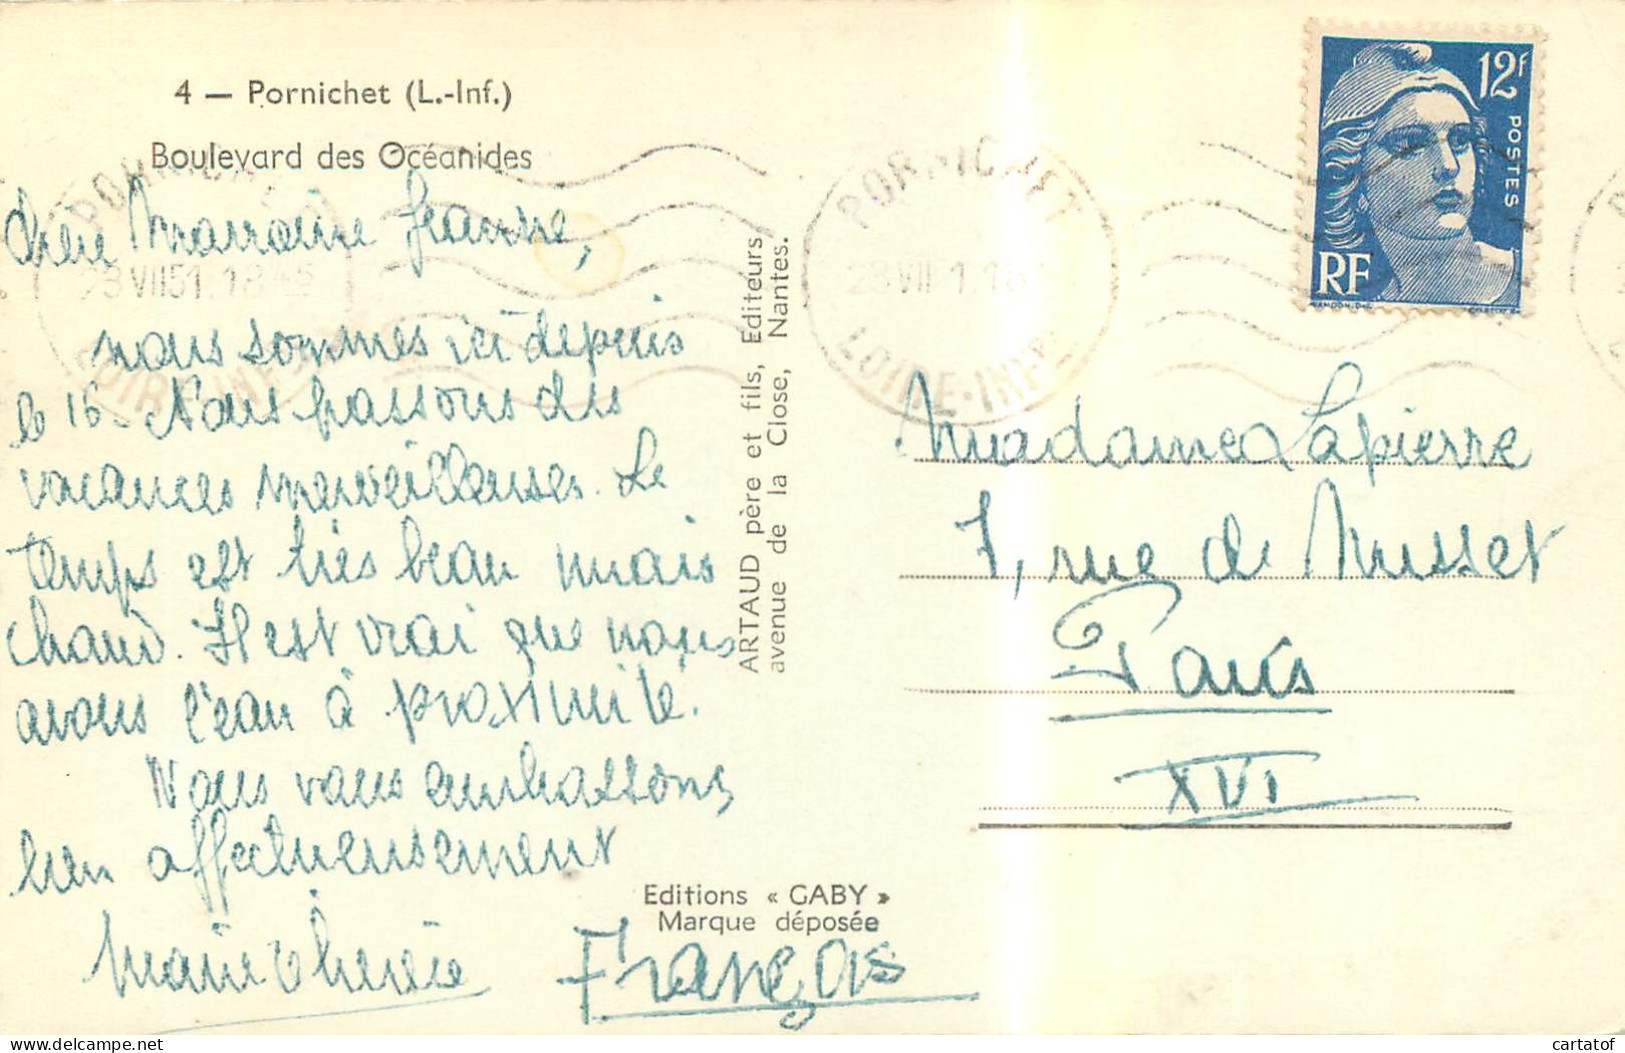 4 — Pornichet (L.-Inf.)
Boulevard des Océanides
Chère Marraine Jeanne,
nous sommes ici depuis
le 16. Nous passons des
vacances merveilleuses. Le
temps est très beau mais
chaud. Il est vrai que nous
avons l'eau à proximité.
Nous vous embrassons
bien affectueusement
Marie Thérèse
François
ARTAUD père et fils, Editeurs
avenue de la Close, Nantes.
Editions « GABY »
Marque déposée
PORNICHET
28 VII 51. 18
LOIRE-INFRE
PORNICHET
28 VII 51. 18
LOIRE-INFRE
12f
POSTES
RF
GANDON
Madame Lapierre
7, rue de Musset
Paris
XVI
cartatof